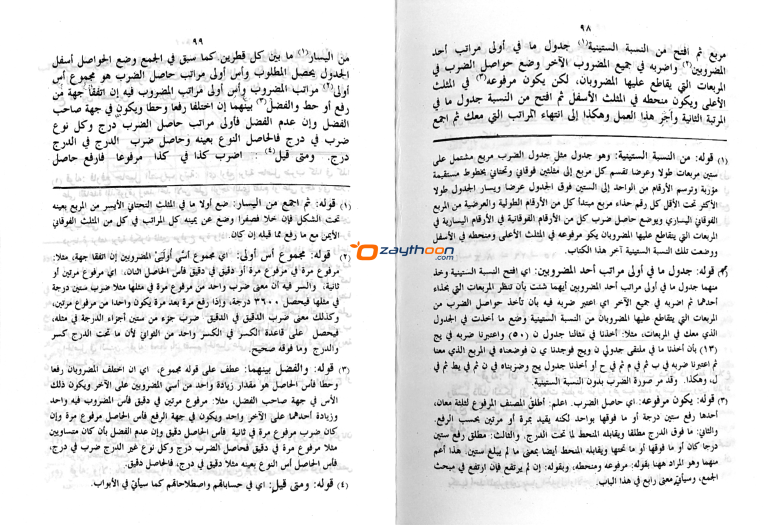 ٩٨
مربع ثم افتح من النسبة الستينية(١) جدول ما في أولى مراتب أحد
المضروبين(٢) واضربه في جميع المضروب الآخر وضع حواصل الضرب في
المربعات التي يتقاطع عليها المضروبان، لكن يكون مرفوعه(٣) في المثلث
الأعلى ويكون منحطه في المثلث الأسفل ثم افتح من النسبة جدول ما في
المرتبة الثانية وأجر هذا العمل وهكذا إلى انتهاء المراتب التي معك ثم اجمع
(١) قوله: من النسبة الستينية: وهو جدول مثل جدول الضرب مربع مشتمل على
ستين مربعات طولا وعرضا تقسم كل مربع إلى مثلثين فوقاني وتحتاني بخطوط مستقيمة
مؤربة وترسم الأرقام من الواحد إلى الستين فوق الجدول عرضا ويسار الجدول طولا
الأكثر تحت الأقل كل رقم حذاء مربع مبتدأ كل من الأرقام الطولية والعرضية من المربع
الفوقاني اليساري ويوضع حاصل ضرب كل من الأرقام الفوقانية في الأرقام اليسارية في
المربعات التي يتقاطع عليها المضروبان يكون مرفوعه في المثلث الأعلى ومنحطه في الأسفل
ووضعت تلك النسبة الستينية آخر هذا الكتاب.
قوله: جدول ما في أولى مراتب أحد المضروبين: اي افتح النسبة الستينية وخذ
منهما جدول ما في أولى مراتب احد المضروبين أيهما شئت بأن تنظر المربعات التي بحذاء
أحدهما ثم اضربه في جميع الآخر اي اعتبر ضربه فيه بأن تأخذ حواصل الضرب من
المربعات التي يتقاطع عليها المضروبان من النسبة الستينية وضع ما أخذت في الجدول
الذي معك في المربعات، مثلا: أخذنا في مثالنا جدول ن (٥٠) واعتبرنا ضربه في يج
(١٣) بأن أخذنا ما في ملتقى جدولي ن ويج فوجدنا ي ن فوضعناه في المربع الذي معنا
ثم اعتبرنا ضربه في ب ثم في م ثم في ح او أخذنا جدول يج وضربناه في ن ثم في يط ثم في
ل، وهكذا. وقد مر صورة الضرب بدون النسبة الستينية.
(٣) قوله: يكون مرفوعه: اي حاصل الضرب. اعلم: أطلق المصنف المرفوع لثلثة معان،
أحدها رفع ستين درجة أو ما فوقها بواحد لكنه يقيد بمرة أو مرتين بحسب الرفع.
والثاني: ما فوق الدرج مطلقا ويقابله المنحط لما تحت الدرج. والثالث: مطلق رفع ستين
درجا كان أو ما فوقها أو ما تحتها ويقابله المنحط أيضا بمعنى ما لم يبلغ ستين. هذا أعم
منهما وهو المراد ههنا بقوله: مرفوعه ومنحطه، وبقوله: إن لم يرتفع فإن ارتفع في مبحث
الجمع، وسيأتي معنى رابع في هذا الباب.
٩٩
من اليسار(١) ما بين كل قطرين كما سبق في الجمع وضع الحواصل أسفل
الجدول يحصل المطلوب وأس أولى مراتب حاصل الضرب هو مجموع أس
أولى(٢) مراتب المضروب وأس أولى مراتب المضروب فيه إن اتفقا جهة من
رفع أو حط والفضل(٣) بينهما إن اختلفا رفعا وحطا ويكون في جهة صاحب
الفضل وإن عدم الفضل فأولى مراتب حاصل الضرب درج وكل نوع
ضرب في درج فالحاصل النوع بعينه وحاصل ضرب الدرج في الدرج
درج. ومتى قيل(٤): اضرب كذا في كذا مرفوعا فارفع حاصل
(١) قوله: ثم اجمع من اليسار: ضع أولا ما في المثلث التحتاني الأيسر من المربع بعينه
تحت الشكل فإن خلا فصفرا وضع عن يمينه كل المراتب في كل من المثلث الفوقاني
الأيمن مع ما رفع مما قبله إن كان.
(٢) قوله: مجموع أس أولى: اي مجموع أسّي أولَيَيْ المضروبين إن اتفقا جهة، مثلا:
مرفوع مرة في مرفوع مرة أو دقيق في دقيق فأس الحاصل اثنان، اي مرفوع مرتين أو
ثانية، والسر فيه أن معنى ضرب واحد من مرفوع مرة في مثلها مثلا ضرب ستين درجة
في مثلها فيحصل ٣٦٠٠ درجة، وإذا رفع مرة بعد مرة يكون واحدا من مرفوع مرتين،
وكذلك معنى ضرب الدقيق في الدقيق ضرب جزء من ستين أجزاء الدرجة في مثله،
فيحصل على قاعدة الكسر في الكسر واحد من الثواني لأن ما تحت الدرج كسر
والدرج وما فوقه صحيح.
(٣) قوله: والفضل بينهما: عطف على قوله مجموع، اي ان اختلف المضروبان رفعا
وحطا فأس الحاصل هو مقدار زيادة واحد من أسي المضروبين على الآخر ويكون ذلك
الأس في جهة صاحب الفضل، مثلا: مرفوع مرتين في دقيق فأس المضروب فيه واحد
وزيادة أحدهما على الآخر واحد ويكون في جهة الرفع فأس الحاصل مرفوع مرة وإن
كان ضرب مرفوع مرة في ثانية فأس الحاصل دقيق وإن عدم الفضل بأن كان متساويين
مثلا مرفوع مرة في دقيق فحاصل الضرب درج وكل نوع غير الدرج ضرب في درج،
فأس الحاصل أس النوع بعينه مثلا دقيق في درج، فالحاصل دقيق.
(٤) قوله: ومتى قيل: اي في حساباتهم واصطلاحاتهم كما سيأتي في الأبواب.
Ozaythoon
.com